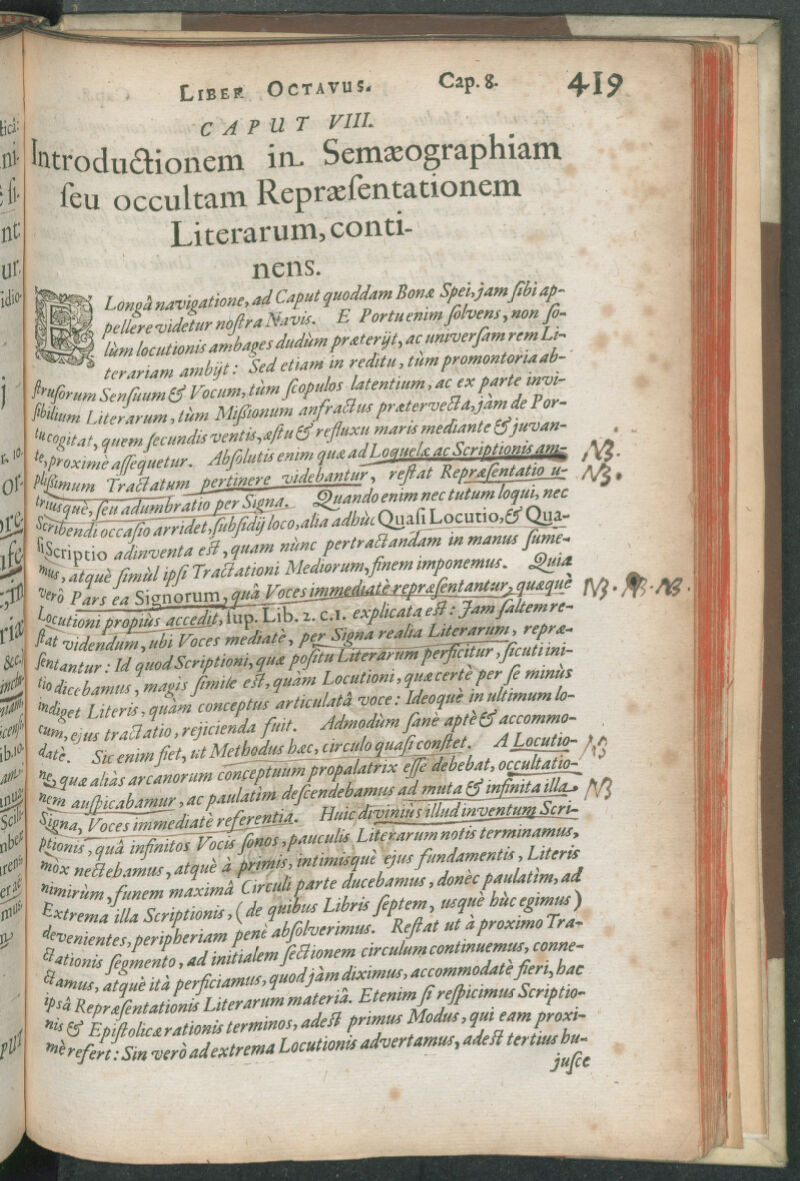 LIBER OCTAVUS. Cap. 8. 419
CAPUT VIII.
Introductionem in Semæographiam
ſeu occultam Repræſentationem
Literarum, conti-
nens.
E Longâ navigatione, ad Caput quoddam Bonæ Spei, jam ſibi ap-
pellere videtur noſtra Navis. E Portu enim ſolvens, non ſo-
lùm locutionis ambages dudùm præterijt, ac univerſam rem Li-
terariam ambijt: Sed etiam in reditu, tùm promontoria ab-
ſtruſorum Senſuum & Vocum, tùm ſcopulos latentium, ac ex parte invi-
ſibilium Literarum, tùm Mißionum anfractus prætervecta, jàm de Por-
tu cogitat, quem ſecundis ventis, æſtu & refluxu maris mediante & juvan-
te, proximè aſſequetur. Abſolutis enim quæ ad Loquelæ ac Scriptionis am- NB.
plißimum Tractatum pertinere videbantur, reſtat Repræſentatio u- NB.
triusquè, ſeu adumbratio per Signa. Quando enim nec tutum loqui, nec
Scribendi occaſio arridet, ſubſidij loco, alia adhùc Quaſi Locutio, & Qua-
ſi Scriptio adinventa eſt, quam nùnc pertractandam in manus ſume-
mus, atquè ſimùl ipſi Tractationi Mediorum, finem imponemus. Quia
verò Pars ea Signorum, quâ Voces immediatè repræſentantur, quæquè NB. NB. NB.
Locutioni propiùs accedit, ſup. Lib. 2. c. 1. explicata eſt: Jam ſaltem re-
ſtat videndum, ubi Voces mediatè, per Signa realia Literarum, repræ-
ſentantur: Id quod Scriptioni, quæ poſitu Literarum perficitur, ſicuti ini-
tio dicebamus, magis ſimile eſt, quàm Locutioni, quæ certè per ſe minùs
indiget Literis, quàm conceptus articulatâ voce: Ideoquè in ultimum lo-
cum, ejus tractatio, rejicienda fuit. Admodùm ſanè aptè & accommo-
datè. Sic enim fiet, ut Methodus hæc, circulo quaſi conſtet. A Locutio- NB
ne, quæ aliàs arcanorum conceptuum propalatrix eſſe debebat, occultatio-
nem auſpicabamur, ac paulatìm deſcendebamus ad muta & infinita illa NB
Signa, Voces immediatè referentia. Huic diviniùs illud inventum Scri-
ptionis, quâ infinitos Vocis ſonos, pauculis Literarum notis terminamus,
mòx nectebamus, atquè à primis, intimisquè ejus fundamentis, Literis
nimirùm, funem maximâ Circuli parte ducebamus, donèc paulatìm, ad
Extrema illa Scriptionis, (de quibus Libris ſeptem, usquè hùc egimus)
devenientes, peripheriam penè abſolverimus. Reſtat ut à proximo Tra-
ctationis ſegmento, ad initialem ſectionem circulum continuemus, conne-
ctamus, atquè ità perficiamus, quod jàm diximus, accommodatè fieri, hac
ipsâ Repræſentationis Literarum materiâ. Etenim ſi reſpicimus Scriptio-
nis & Epiſtolicæ rationis terminos, adeſt primus Modus, qui eam proxi-
mè refert: Sin verò ad extrema Locutionis advertamus, adeſt tertius hu-
juſce